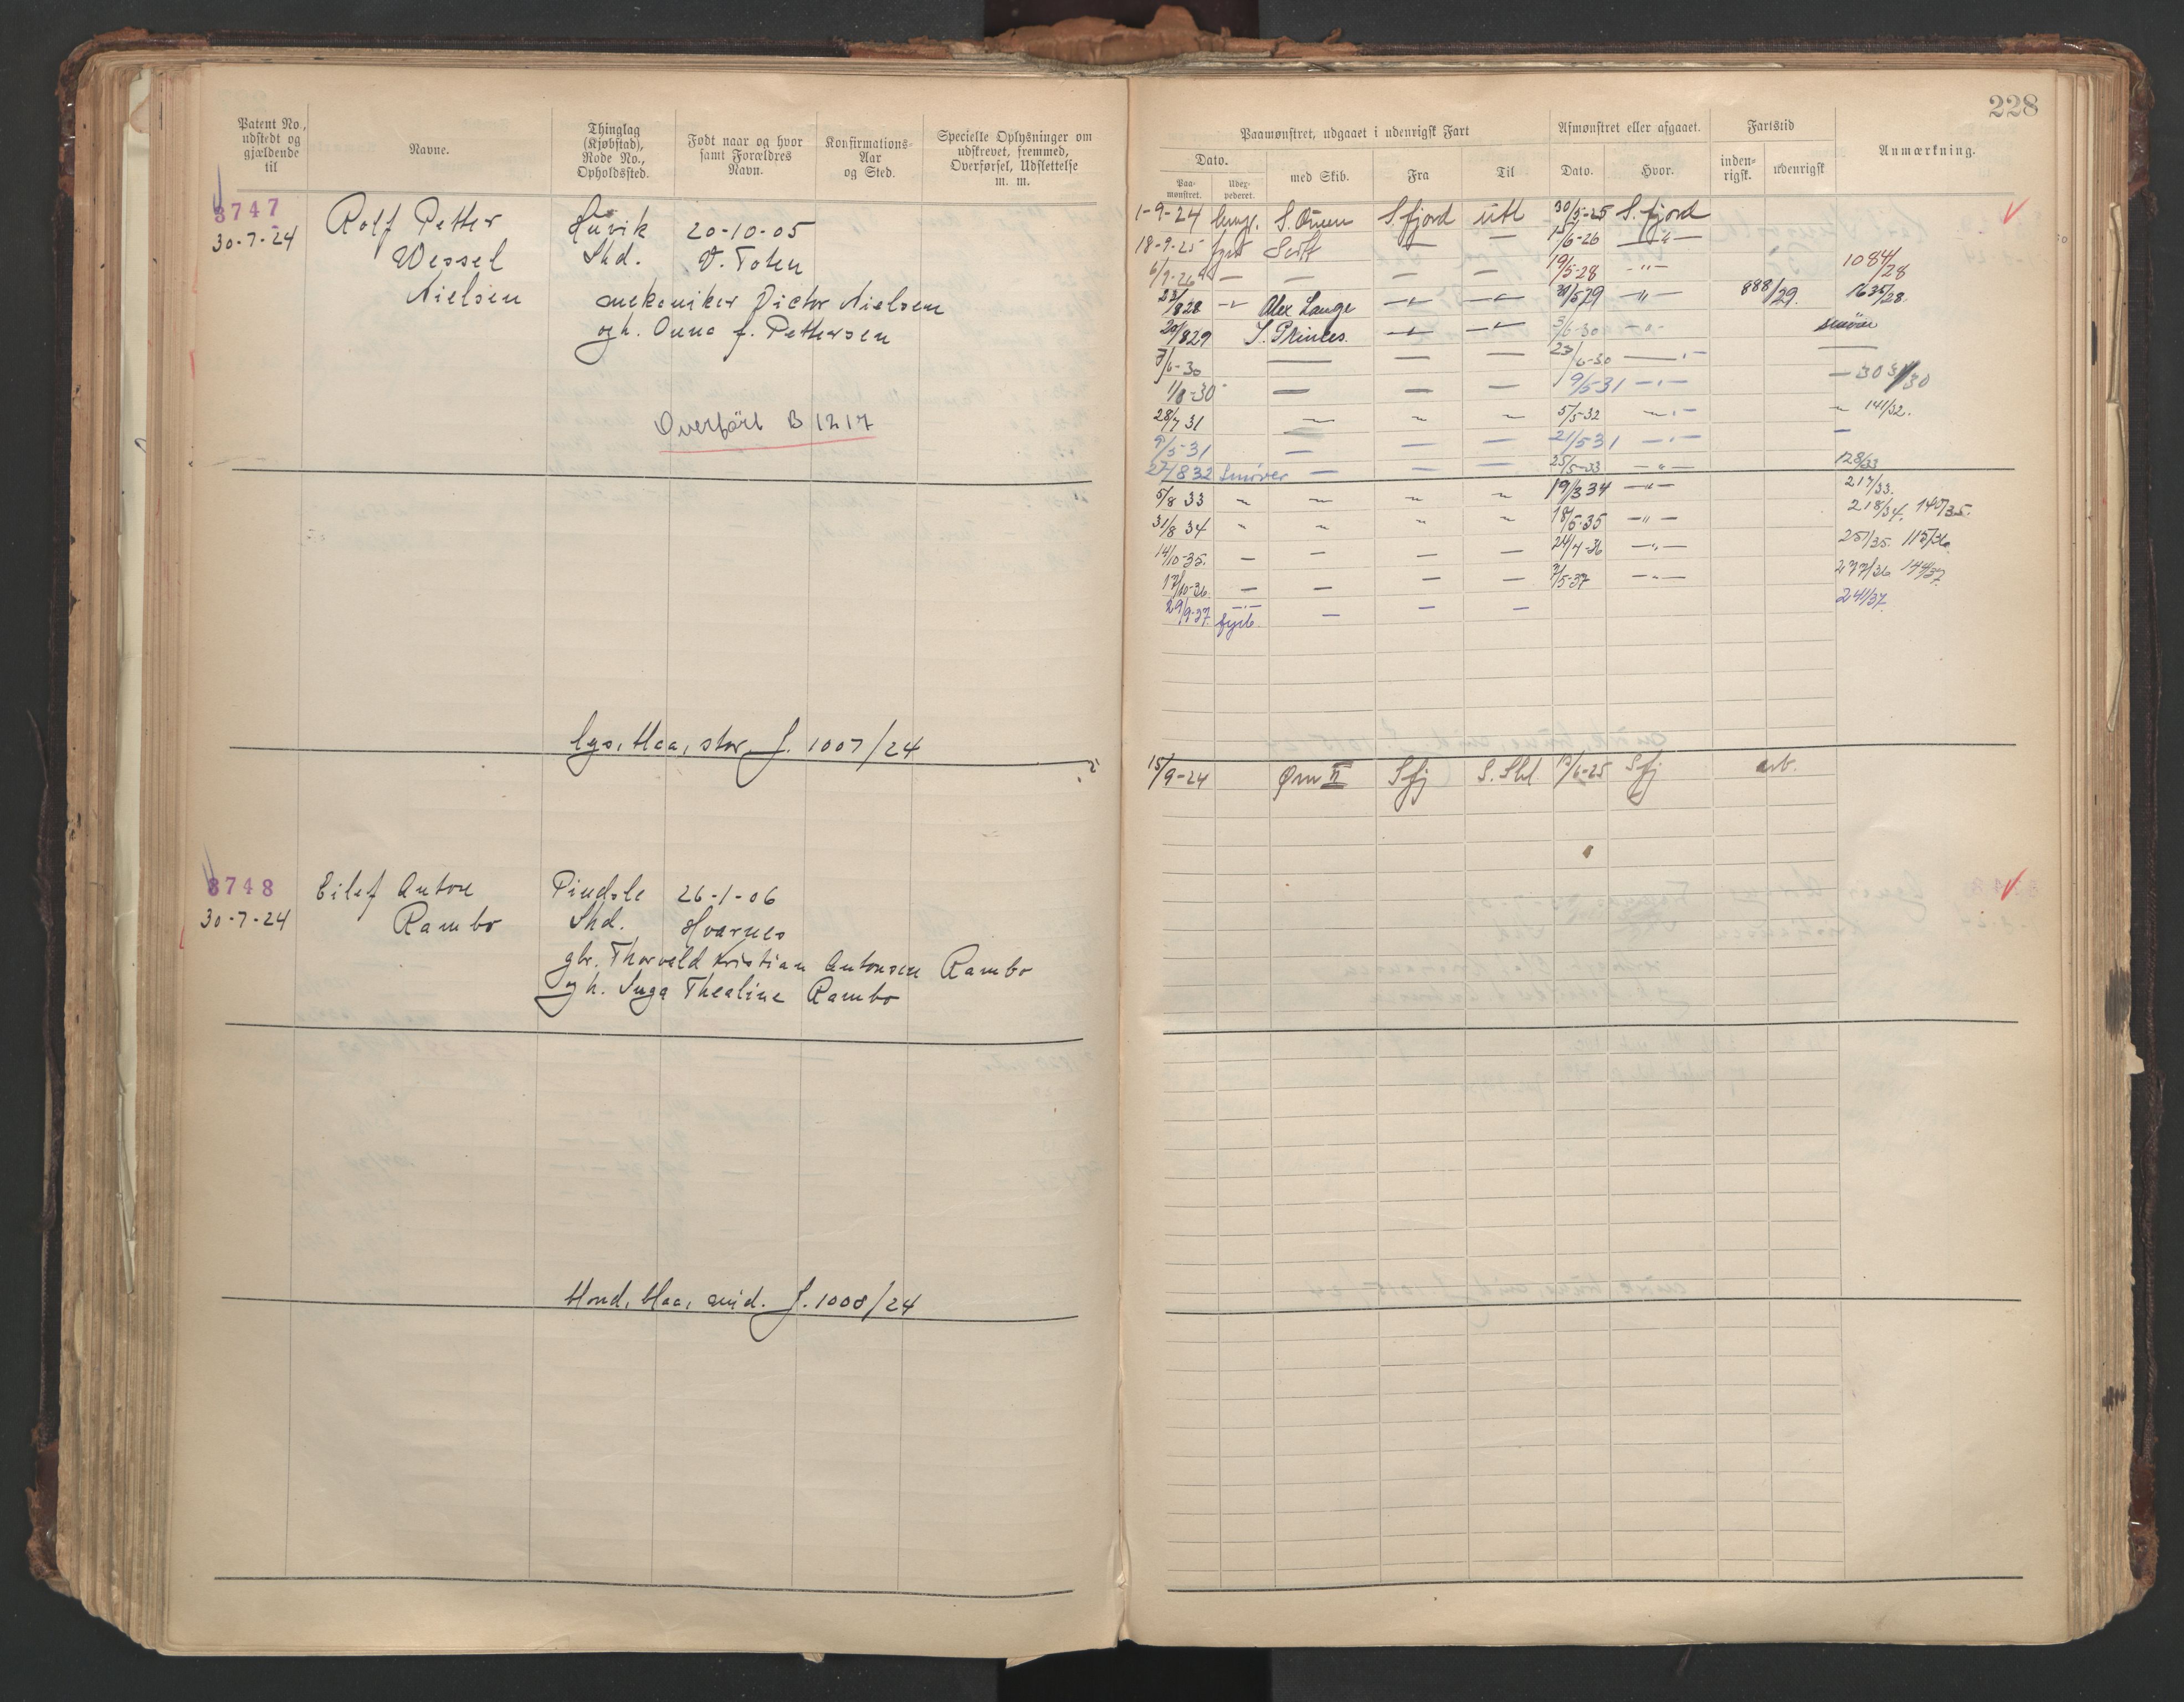 228
Patent No., udstedt og gjældende til
Navne.
Thinglag (Kjøbstad), Rode No., Opholdssted.
Født naar og hvor samt Forældres Navn.
Konfirmations- Aar og Sted.
Specielle Oplysninger om udskrevet, fremmed, Overførsel, Udslettelse m. m.
Paamønstret, udgaaet i udenrigsk Fart
Afmønstret eller afgaaet.
Fartstid
Anmærkning.
Dato.
med Skib.
Fra
Til
Dato.
Hvor.
inden- rigsk.
udenrigsk
Paa- mønstret.
Udex- pederet.
3747
30-7-24
Rolf Petter
Wessel
Nielsen
Huvik 20-10-05
Shd. V. Toten
mekaniker Victor Nielsen
og h. Anna f. Pettersen
Overført B 1217
lys, blaa, stor. J. 1007/24
1-9-24 S. Ørnen S.fjord utl 30/5-25 S. fjord
18-9-25 fyrb — — 15/6-26 —"—
6/9-26 — — — — 19/5-28 —"— 1084/28
23/8 28 —"— Alex Lange —"— —"— 30/5 29 —"— 888/29. 1635/28.
20/8 29 S. Princes. —"— —"— 3/6-30 —"— smører
3/6-30 — — — 23/6-30 —"— —
1/8-30 — — — 9/5 31 —"— —303/30
28/7 31 ~ ~ ~ 5/5-32 —"— ~ 141/32.
9/5-31 — — — 21/5 31 —"— —
27/8 32 Smører — — — 25/5-33 —"— 128/33
5/8 33 ~ ~ ~ ~ 19/3 34 —"— 217/33.
31/8 34 ~ ~ ~ ~ 18/5-35 —"— 218/34. 140/35.
14/10-35. — — — — 24/4-36 —"— 251/35. 115/36.
17/10-36. — — — — 7/5-37 —"— 277/36 144/37.
29/9-37. fyrb — — — 241/37.
15/9-24 Ørn II Sfj S. Shl 12/6-25 Sfj arb.
3748
30-7-24
Eilef Anton
Rambo
Pindsle 26-1-06
Shd. Hvarnes
gbr. Thorvald Kristian Antonsen Rambo
og h. Inga Thealine Rambo
blond, blaa, mid. J. 1008/24